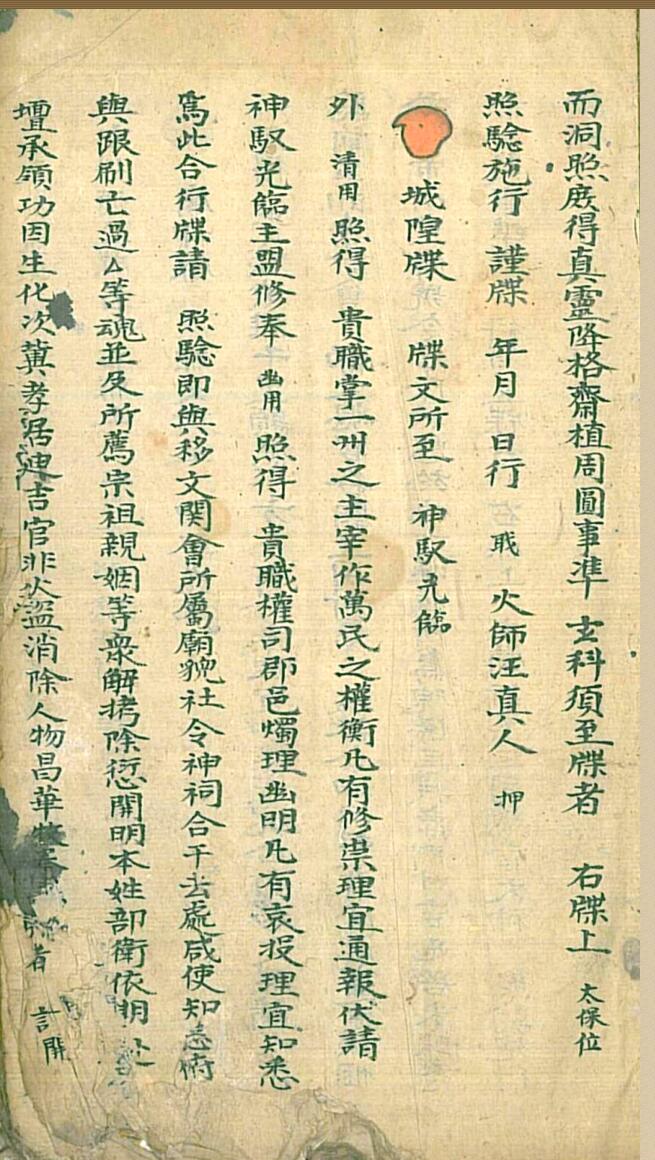 而洞照庻得真靈降格齋植周圓事準 玄科須至牒者 右牒上 太保位
照驗施行 謹牒 年月 日行 右職上 火師汪真人 押
城隍牒 牒文所至 神馭光臨
外 清用 照得 貴職掌一州之主宰作萬民之權衡凡有修崇理宜通報伏請
神馭光臨主盟修奉 幽用 照得 貴職權司郡邑燭理幽明凡有哀投理宜知悉
爲此合行牒請 照驗即與移文関會所屬廟貌社令神祠合干去處咸使知悉俯
與跟刷亡過厶等魂並及所薦宗祖親姻等衆解拷除愆開明本姓部衛依期赴
壇承領功因生化次冀孝居迪吉官非火盜消除人物昌華 者 計開